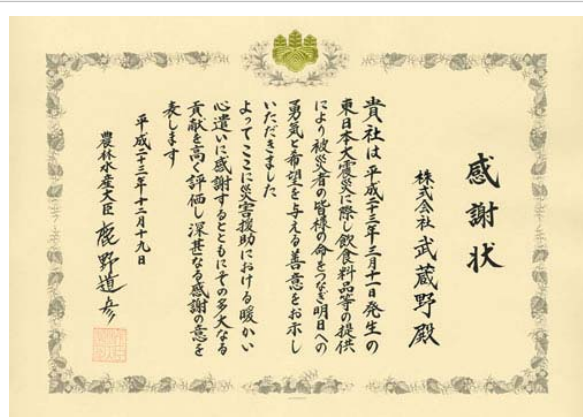 感謝状
株式会社 武蔵野殿
貴社は平成二十三年三月十一日発生の
東日本大震災に際し飲食料品等の提供
により被災者の皆様の命をつなぎ明日への
勇気と希望を与える善意をお示し
いただきました
よってここに災害援助における暖かい
心遣いに感謝するとともにその多大なる
貢献を高く評価し深甚なる感謝の意を
表します
平成二十三年十二月十九日
農林水産大臣 鹿野道彦